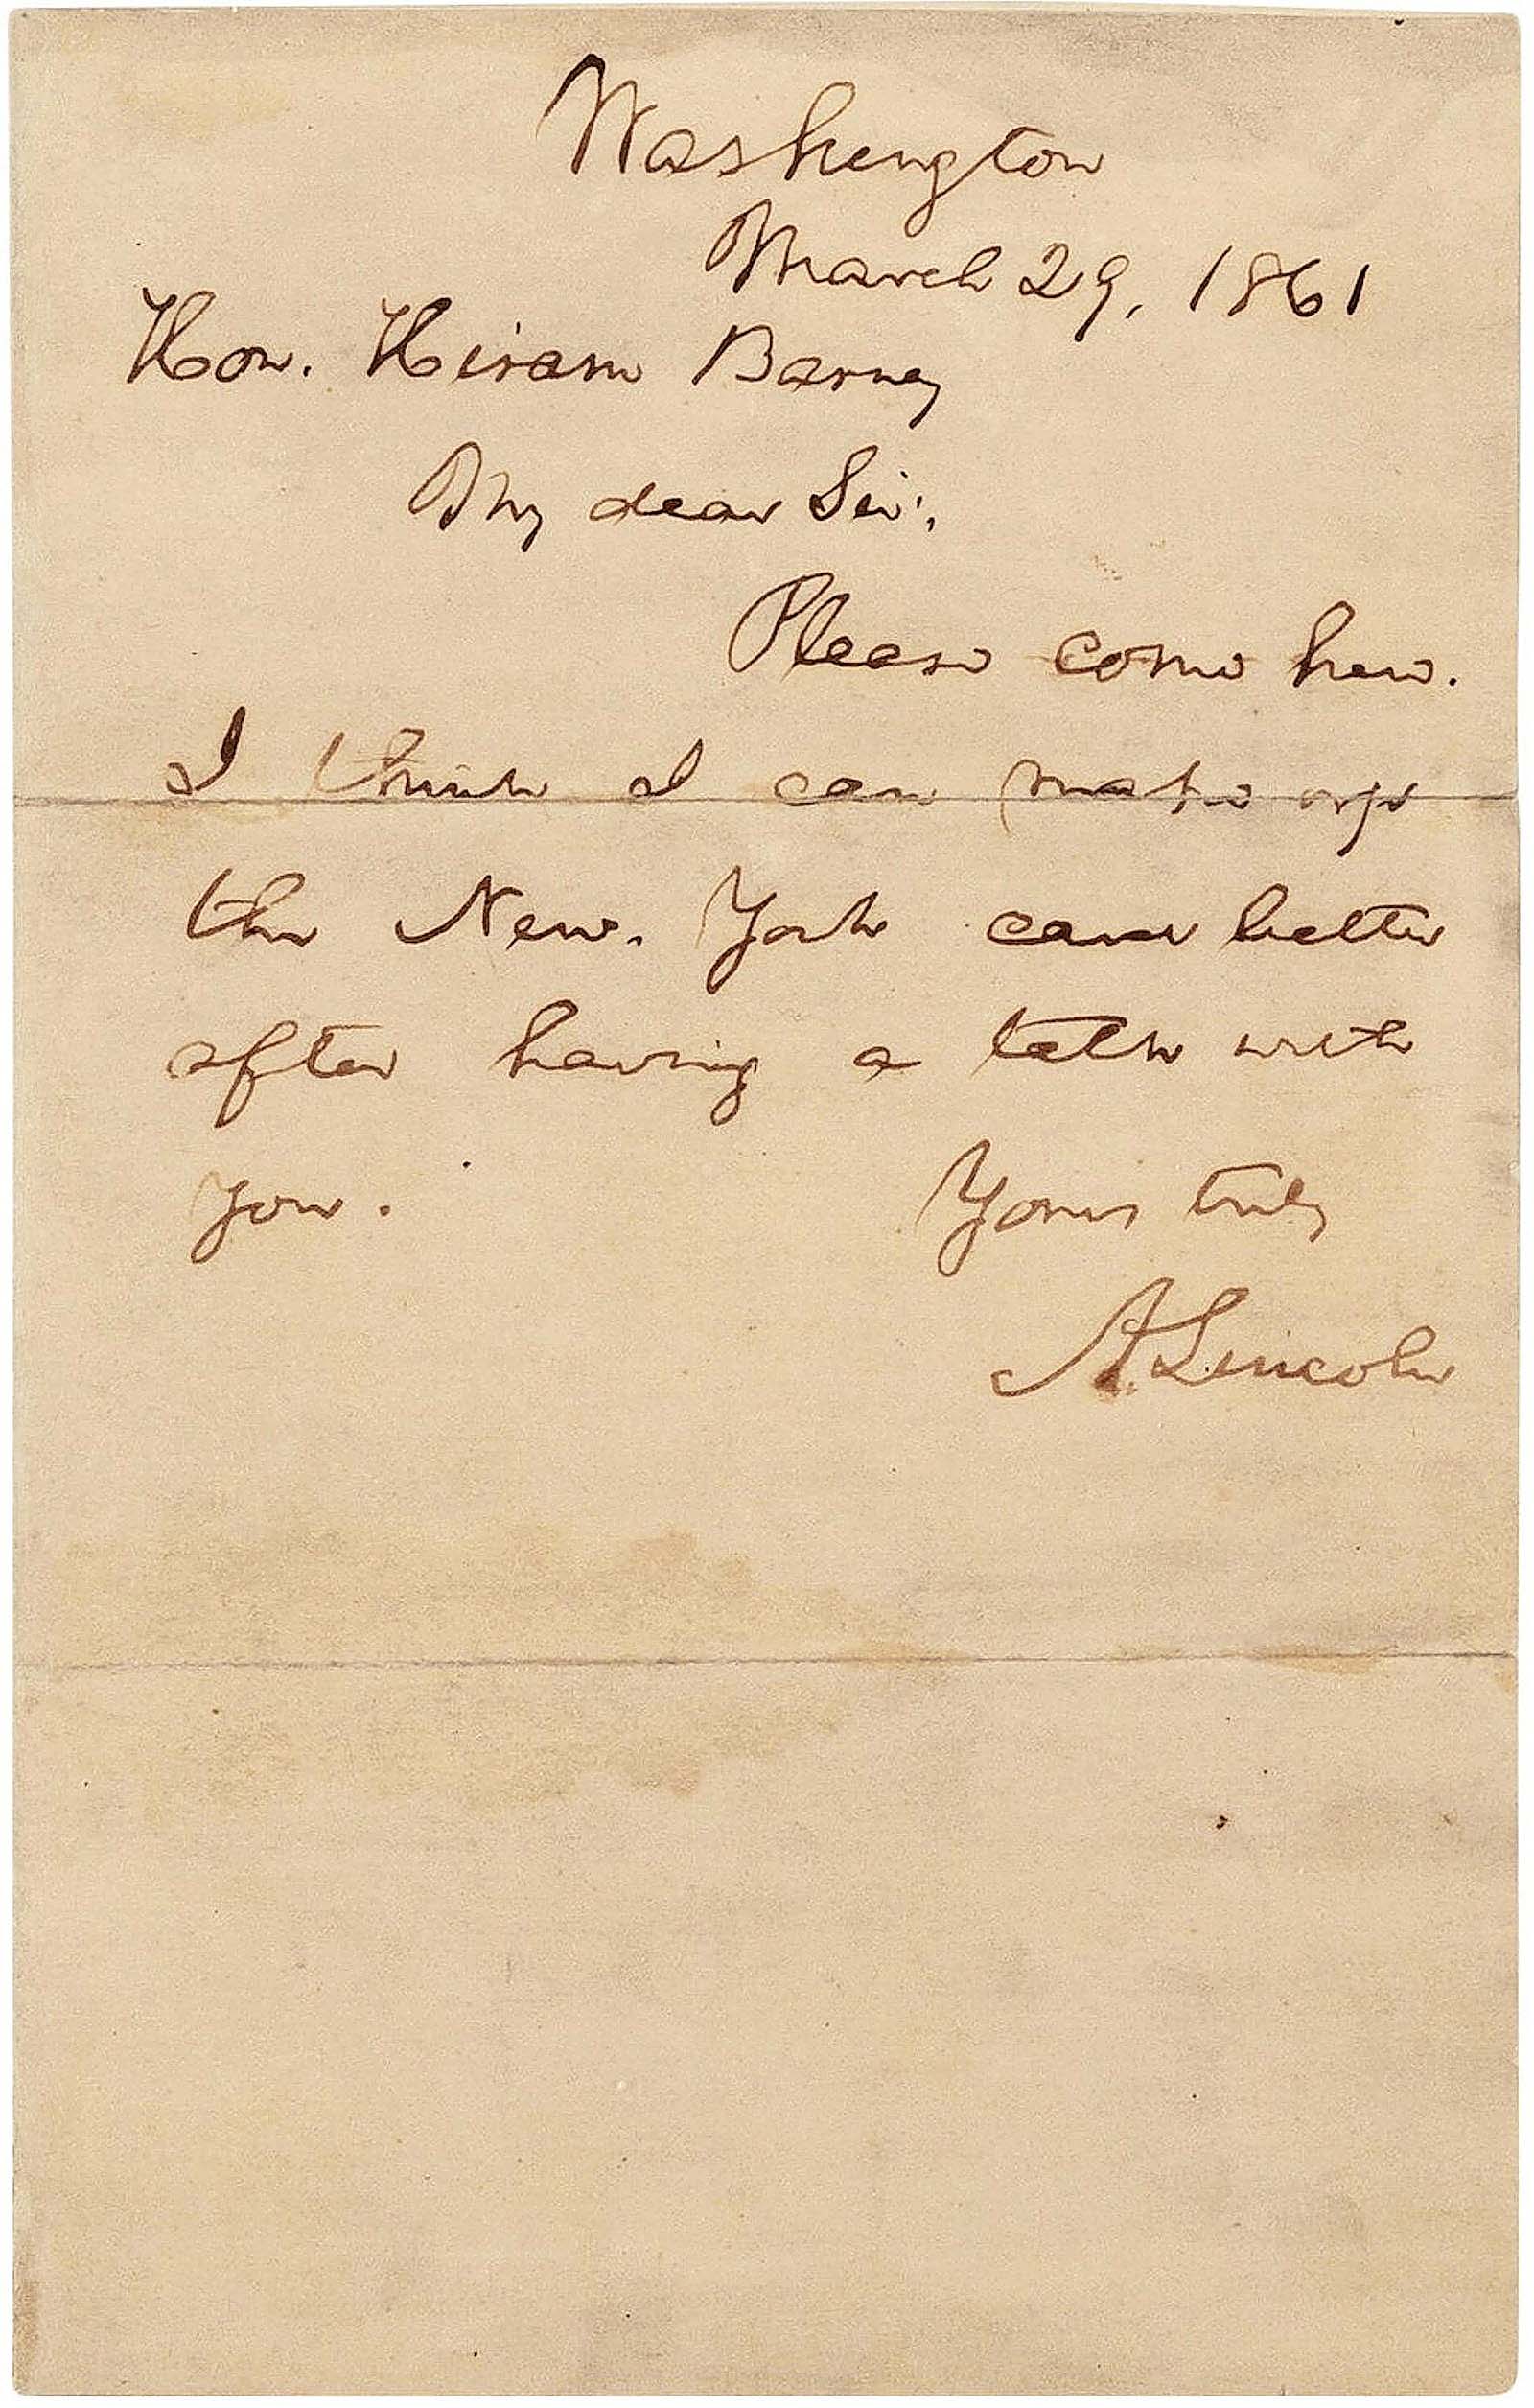 Washington
March 29, 1861
Hon. Hiram Barney
My dear Sir:
Please come here.
I think I can make up
the New-York card better
after having a talk with
you.
Yours truly
A. Lincoln